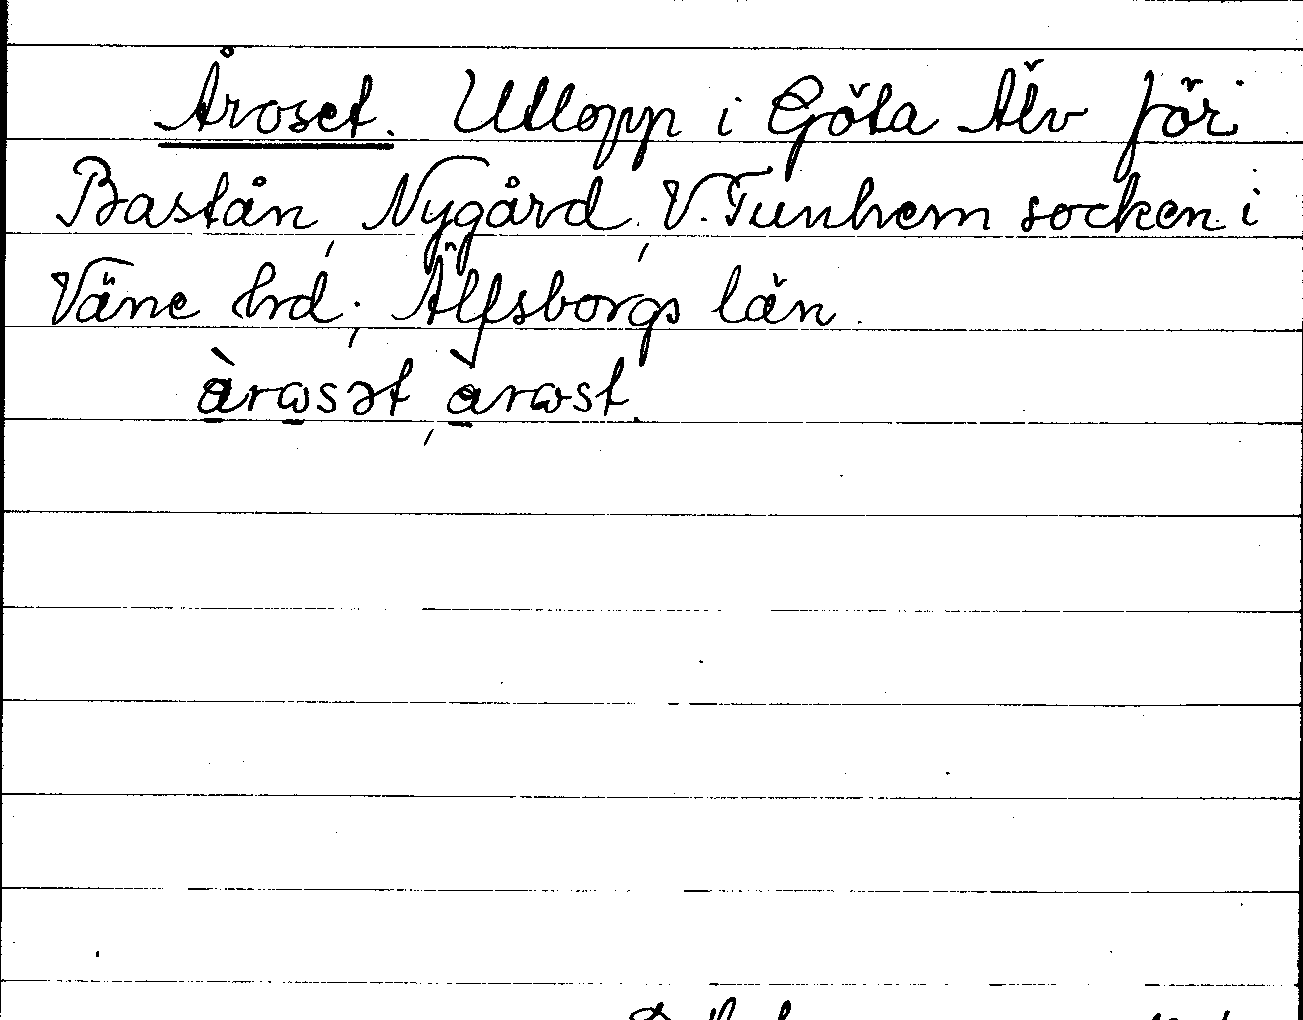 Åroset. Utlopp i Göta Älv för
Bastån, Nygård, V. Tunhem socken i
Väne hrd; Älfsborgs län.
àrɷsət, àrɷst.